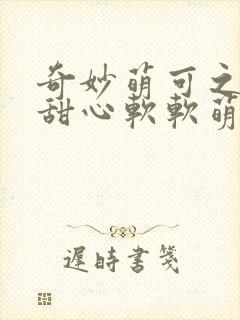 奇妙萌可之
甜心軟軟萌
遲時書箋